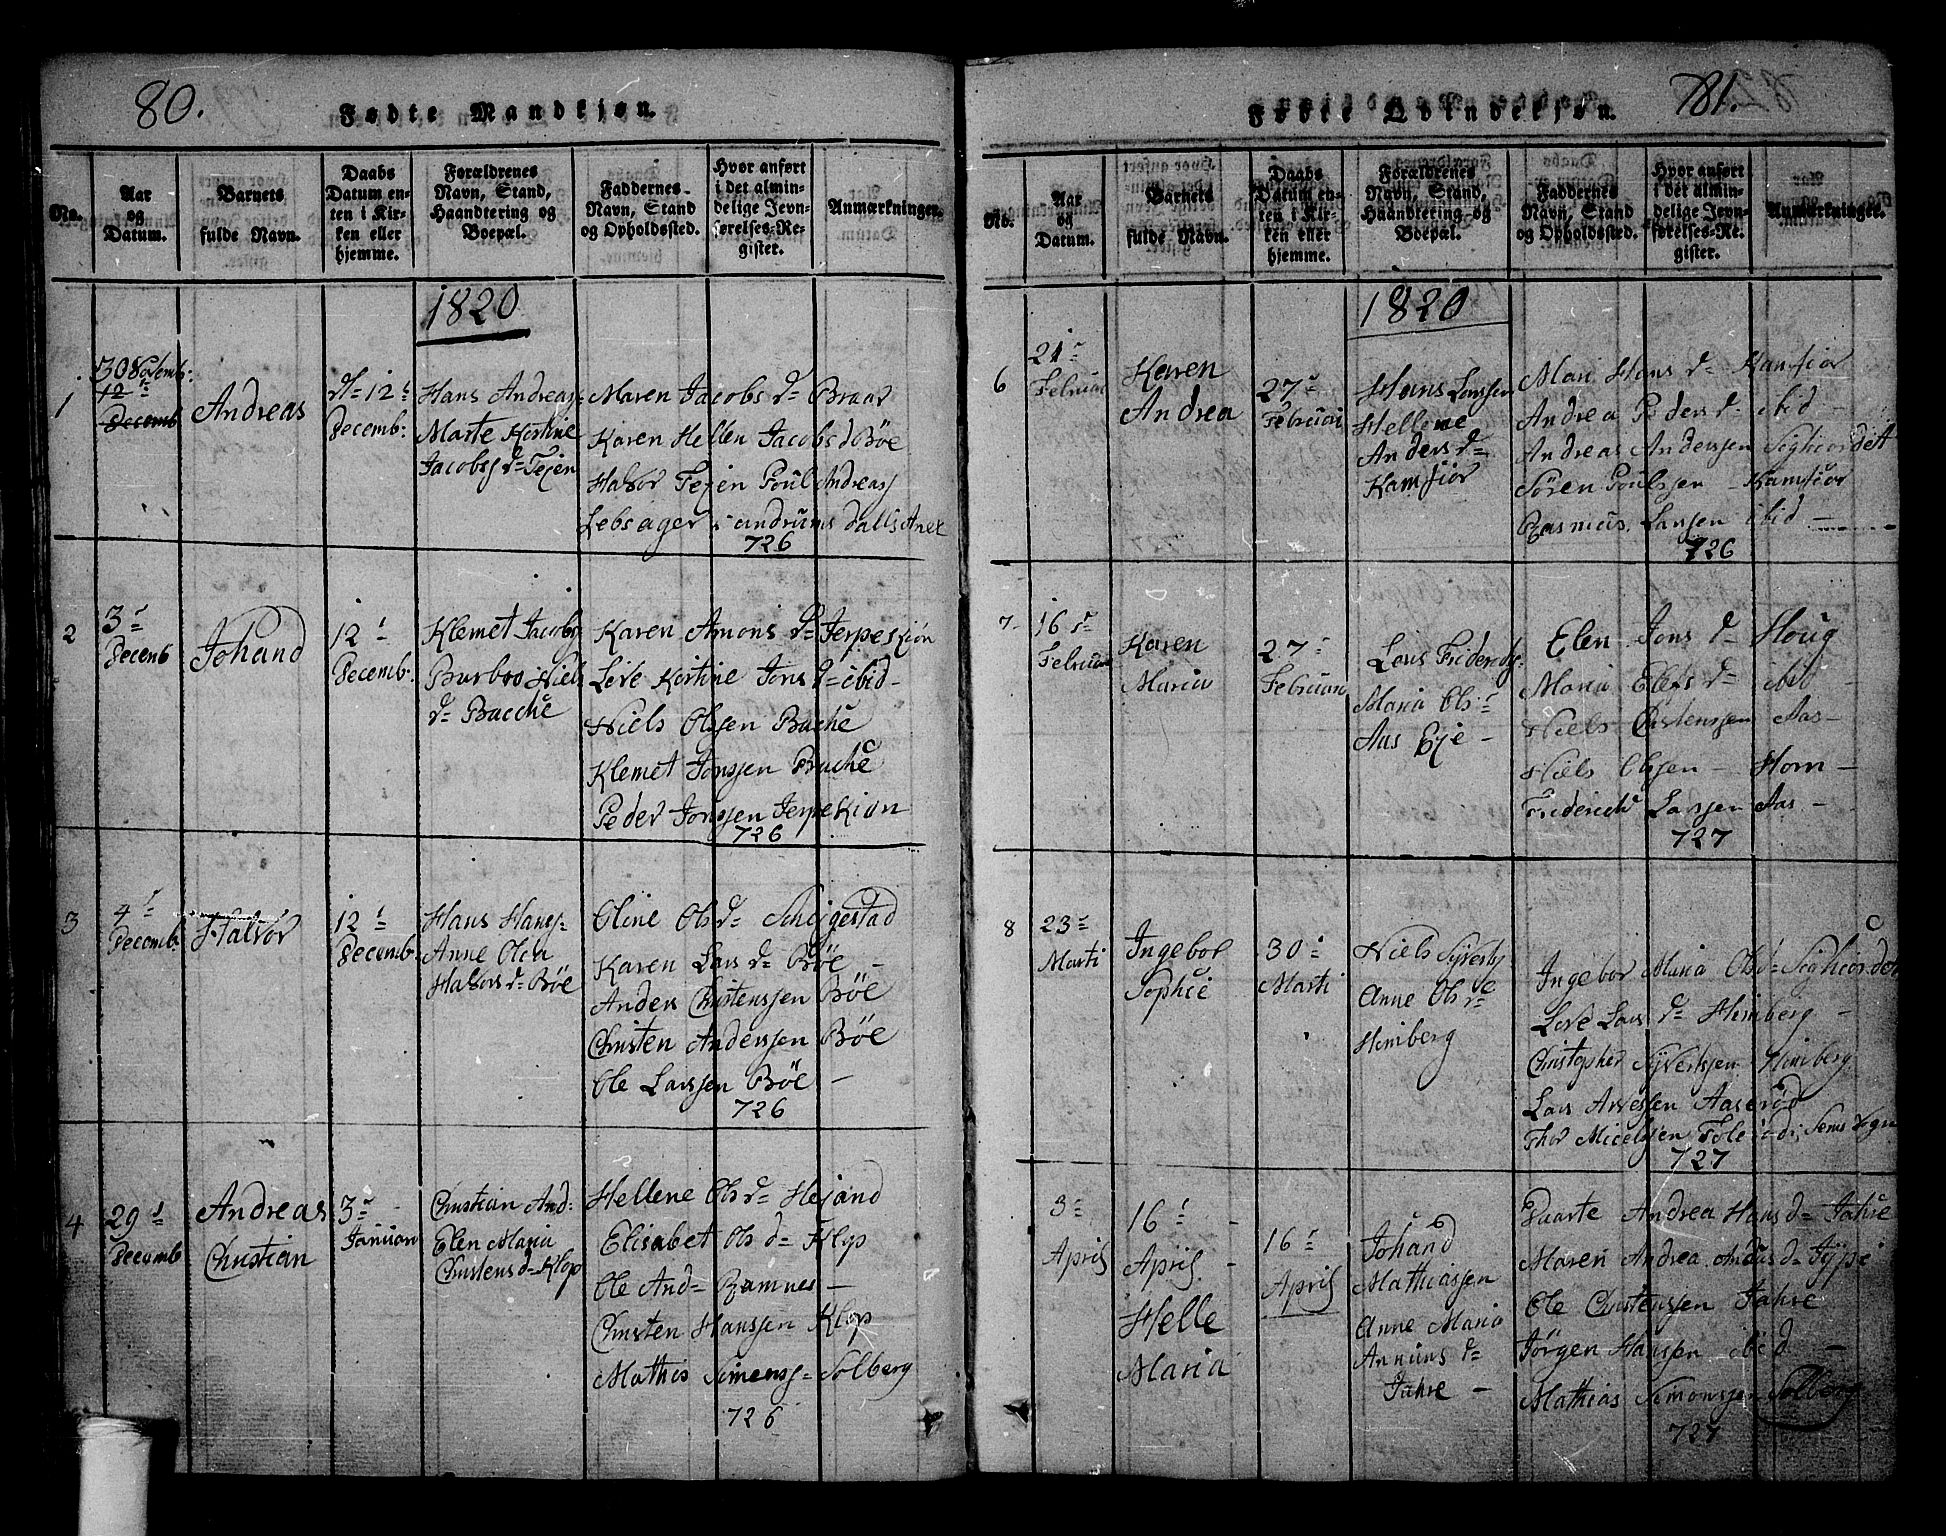 80.
Fødte Mandkjøn.
No.
Aar
og
Datum.
Barnets
fulde Navn.
Daabs
Datum en-
ten i Kir-
ken eller
hjemme.
Forældrenes
Navn, Stand,
Haandtering og
Boepæl.
Faddernes
Navn, Stand
og Opholdssted.
Hvor anført
i det almin-
delige Jevn-
førelses-Re-
gister.
Anmærkninger.
1820
1
30 Novemb:
12
Decemb
Andreas
12
Decemb:
Hans Andreas
Marte Kirstine
Jacobs d Tejen
Maren Jacobs d Braar
Karen Hellen Jacobs d Böe
Halvor Tejen Poul Andreas
Lebsager i andrums dalls Anex
726
2
3
Decemb
Johand
12
Decemb:
Klemet Jacobs
Barbro Niels
d Bacche
Karen Amons d Jerpekiøn
Live Kirstine Jons d ibid
Niels Olssen Bache
Klemet Jonssen Bache
Peder Jonssen Jerpekiøn
726
3
4
Decemb
Halvor
12
Decemb.
Hans Hans
Anne Olea
Halvors d Böe
Oline Ols d Schigestad
Karen Lars d Böe
Anders Christenssen Böe
Christen Anderssen Böe
Ole Larssen Böe
726
4
29
Decemb
Andreas
Christian
3
Januari
Christian And:
Elen Maria
Christens d Klop
Hellene Ols d Hejand
Elisabet Ols d Klop
Ole And Ramnes
Christen Hanssen Klop
Mathis Simens Solberg
726
81.
Fødte Qvindekjøn.
No.
Aar
og
Datum.
Barnets
fulde Navn.
Daabs
Datum en-
ten i Kir-
ken eller
hjemme.
Forældrenes
Navn, Stand,
Haandtering og
Boepæl.
Faddernes
Navn, Stand
og Opholdssted.
Hvor anført
i det almin-
delige Jevn-
førelses-Re-
gister.
Anmærkninger.
1820
6
21
Februar
Karen
Andrea
27
Februari
Hans Larssen
Hellene
Anders d
Kamfior
Mari Hans d Kamfior
Andrea Peders d ibid
Andreas Anderssen
Søren Poulssen Kamfior
Rasmus Larssen ibid
726
7
16
Februar
Karen
Maria
27
Februari
Lars Friderichs
Maria Ols
Aas Eje
Elen Jons d Houg
Maria Elefs d ibid
Niels Christenssen Aas
Niels Olssen Horn
Friderich Larssen Aas
727
8
23
Marti
Ingebor
Sophie
30
Marti
Niels Syverts
Anne Ols d
Himberg
Ingebor Maria Ols d
Live Lars d Himberg
Christopher Syvertssen Himberg
Lars Arvessen Aaserød
Thor Micelssen
727
3
April
16
April
Helle
Maria
16
April
Johand
Mathiassen
Anne Maria
d
Jahre
Andrea Hans d Jahre
Maren Andrea
Ole Christenssen Jahre
Jørgen Hanssen ibid
Mathias Simonssen Solberg
727